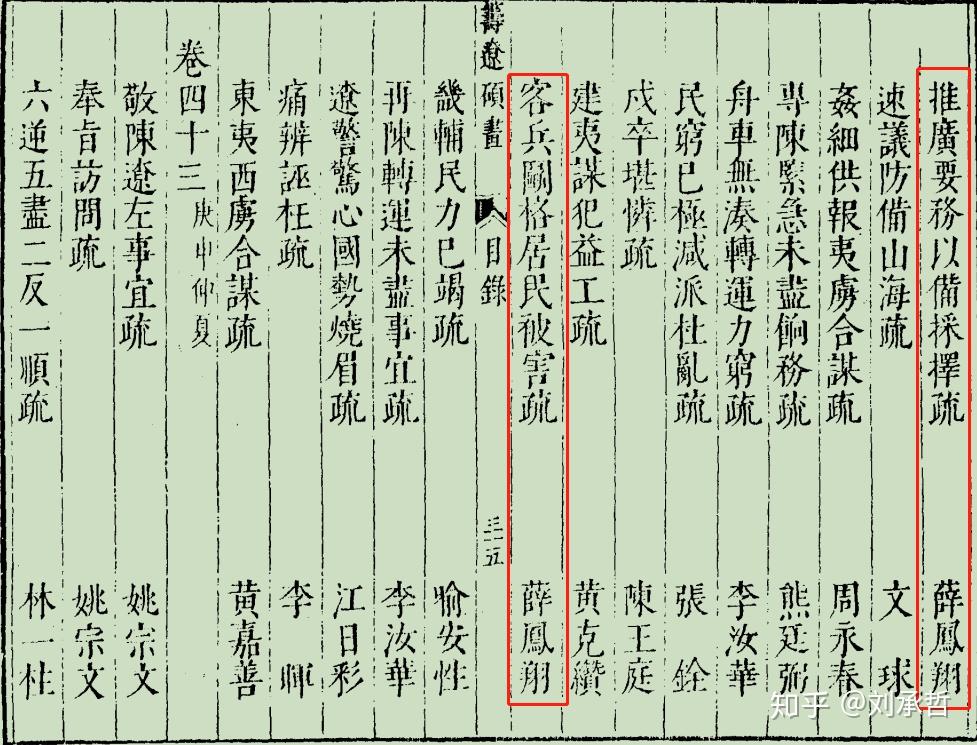 推廣要務以備採擇疏 薛鳳翔
速議防備山海疏 文球
姦細供報夷虜合謀疏 周永春
專陳緊急未盡餉務疏 熊廷弼
舟車無湊轉運力窮疏 李汝華
民窮已極減派杜亂疏 張銓
戍卒堪憐疏 陳王庭
建夷謀犯益工疏 黃克纘
客兵鬬格居民被害疏 薛鳳翔
籌遼碩畫 目錄 三十五
畿輔民力已竭疏 喻安性
再陳轉運未盡事宜疏 李汝華
遼警驚心國勢燒眉疏 江日彩
痛辨誣枉疏 李暉
東夷西虜合謀疏 黃嘉善
卷四十三 庚申仲夏
敬陳遼左事宜疏 姚宗文
奉旨訪問疏 姚宗文
六逆五盡二反一順疏 林一柱
知乎 @刘承哲